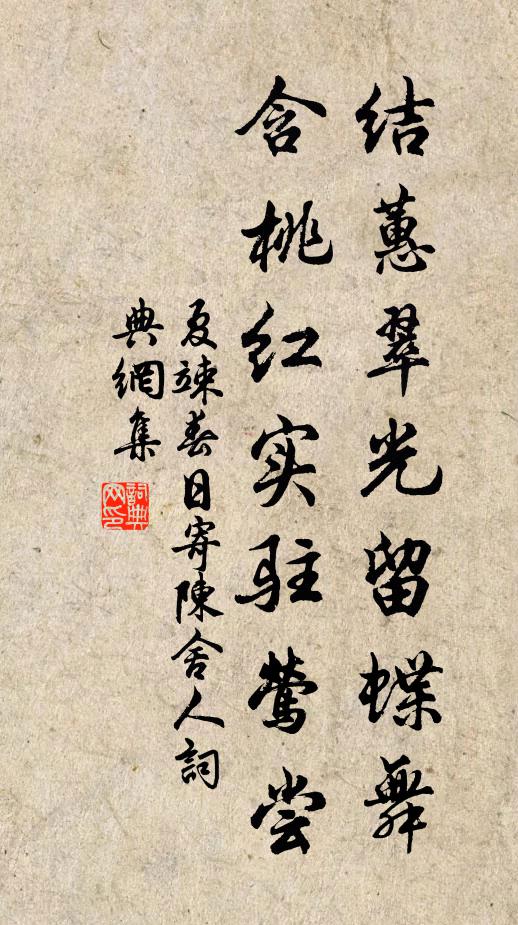 结蕙翠光留蝶舞
含桃红实驻莺尝
夏竦春日寄陳舍人詞
典網集
詞典网印